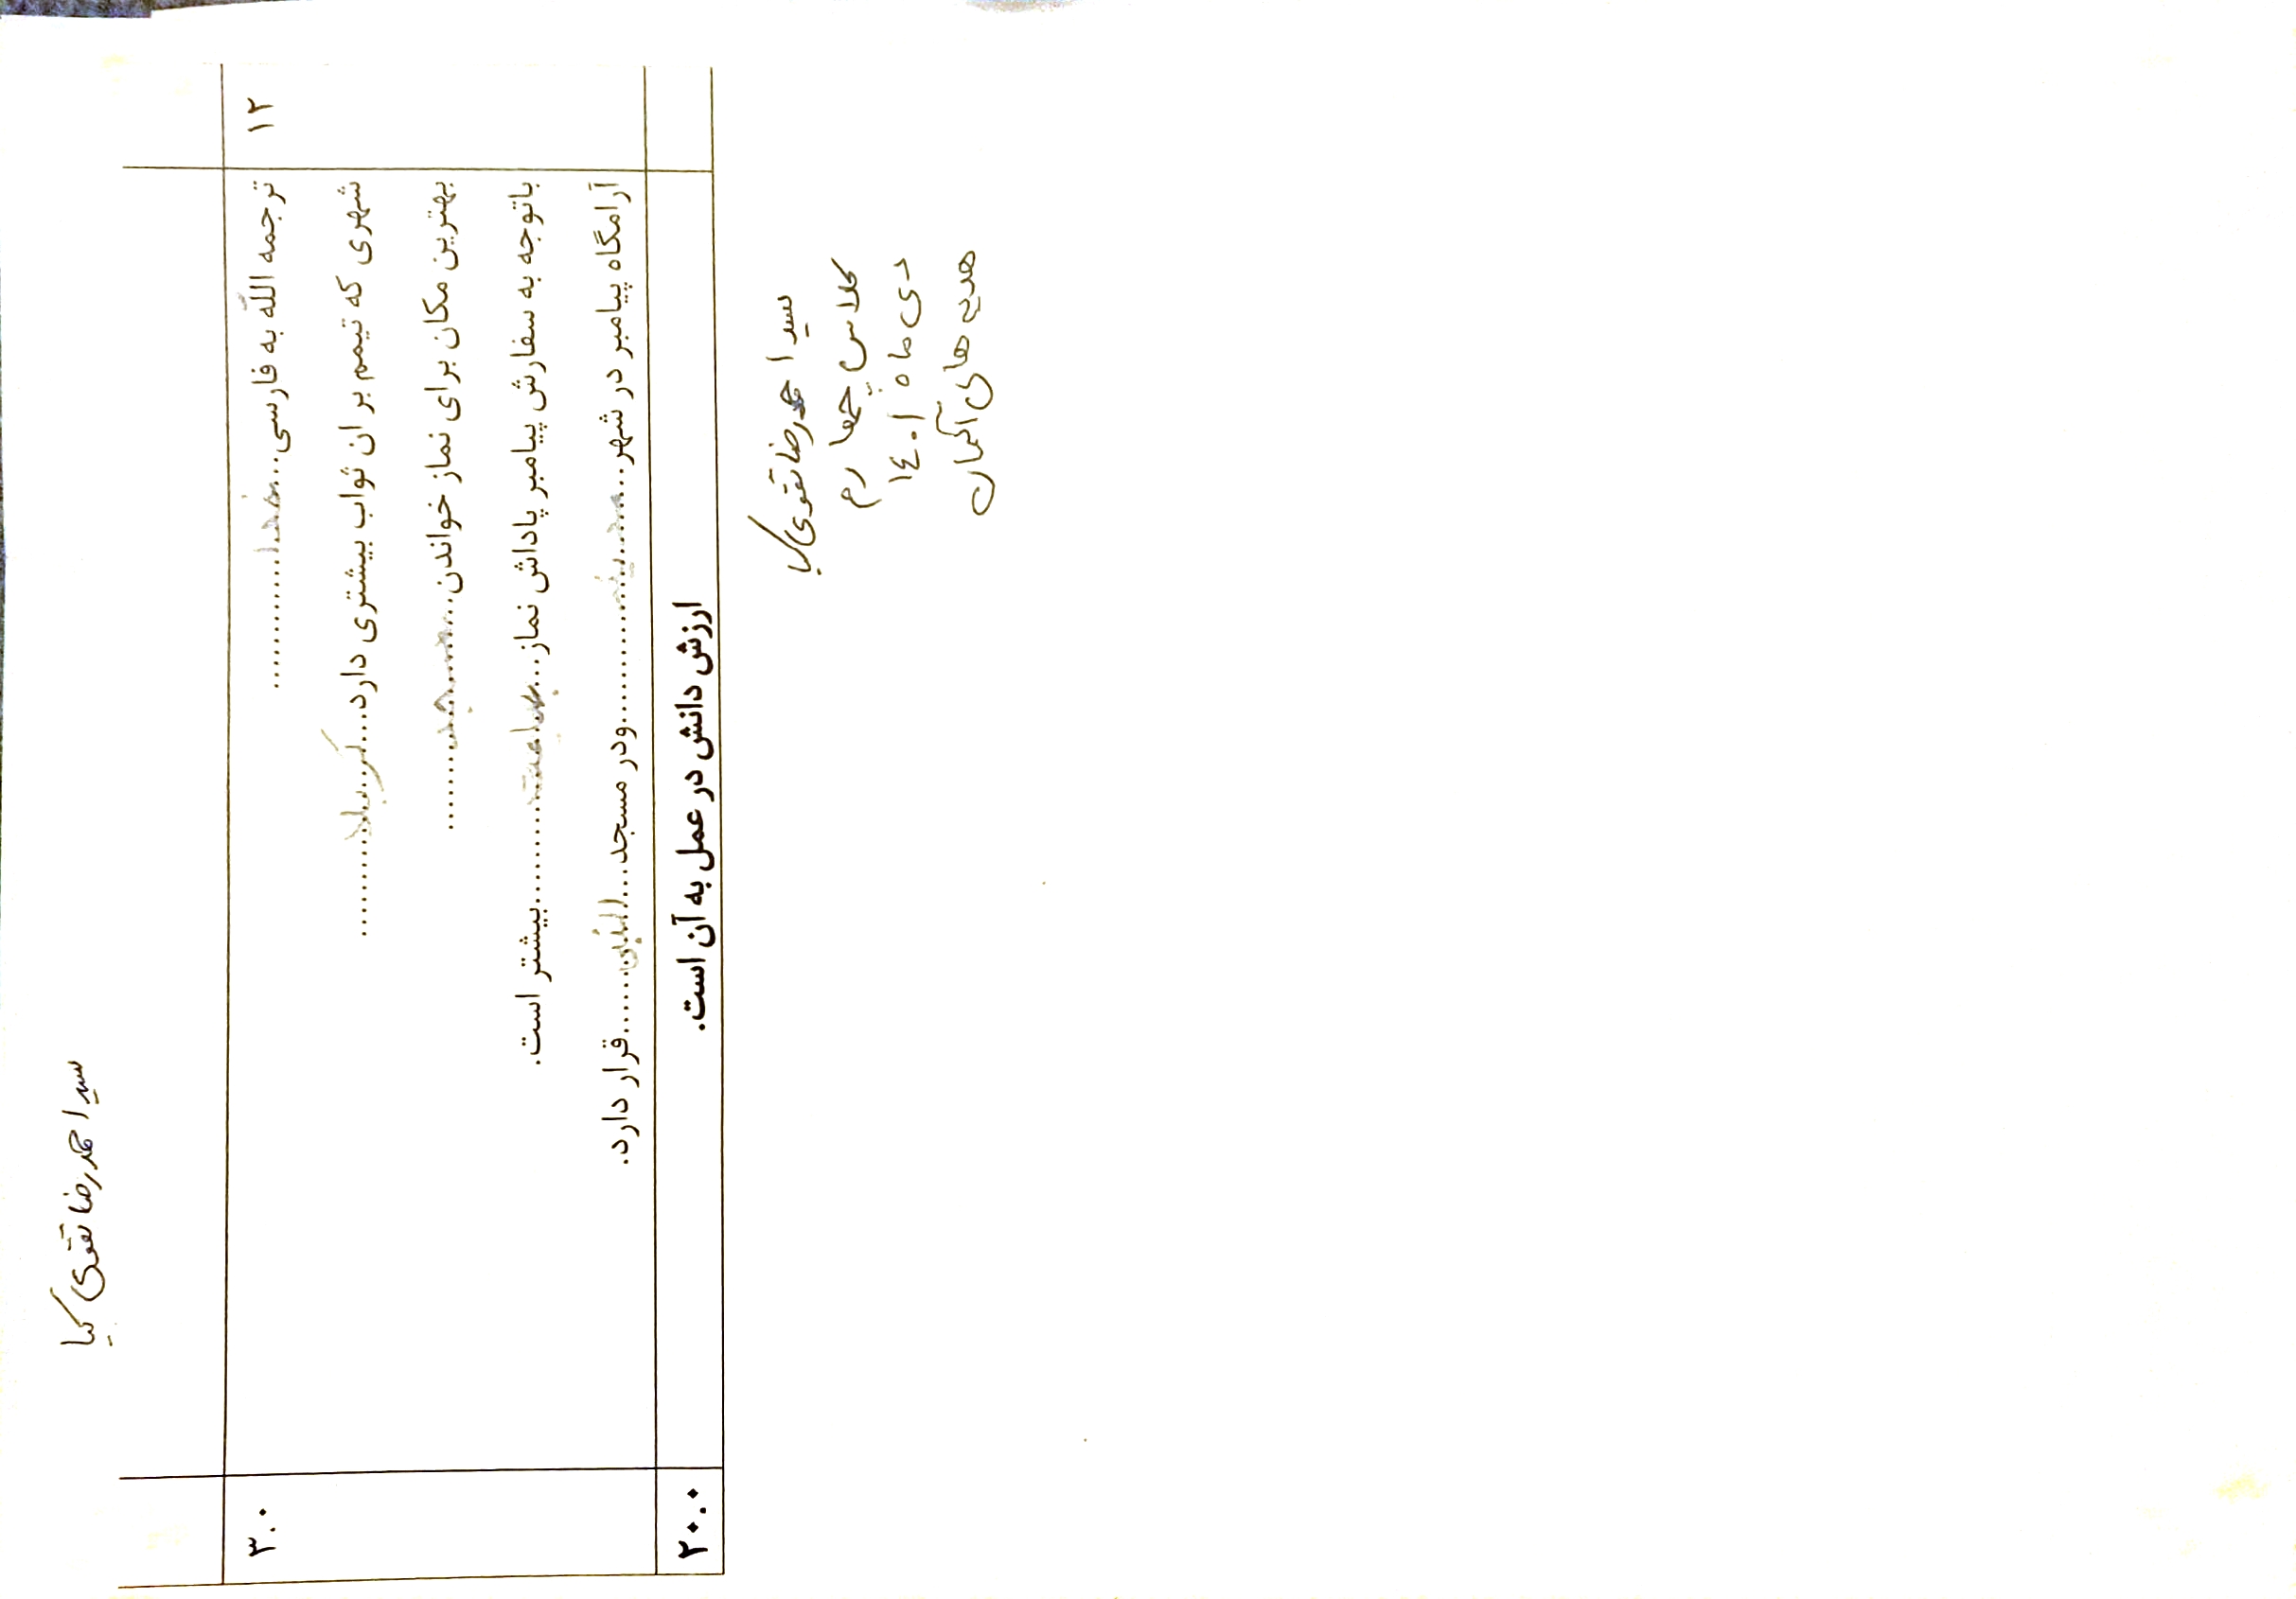 سید احمدرضا تقوی کیا
۱۲
ترجمه الله به فارسی....خدا............
شهری که تیمم بر ان ثواب بیشتری دارد....کربلا............
بهترین مکان برای نماز خواندن......مسجد............
باتوجه به سفارش پیامبر پاداش نماز...جماعت............بیشتر است.
آرامگاه پیامبر در شهر......مدینه............ودر مسجد....النبی........قرار دارد.
۳.۰
ارزش دانش در عمل به آن است.
۲۰.۰
سید احمدرضا تقوی کیا
کلاس چهارم
دی ماه ۱۴۰۱
هدیه های آسمان